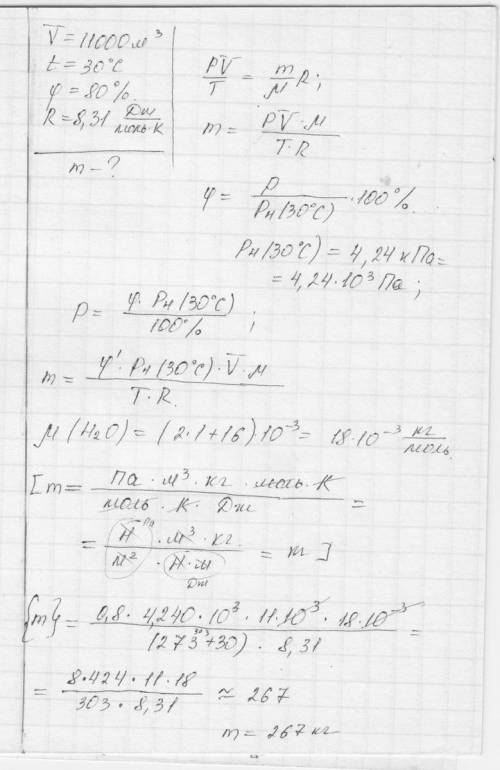 V = 11000 м³
t = 30°C
φ = 80%
R = 8,31 Дж/моль·К
m - ?
PV/T = m/M R;
m = PV·M/T·R
φ = P/Pн(30°C) · 100%.
Pн(30°C) = 4,24 кПа =
= 4,24·10³ Па;
P = φ·Pн(30°C)/100% ;
m = φ'·Pн(30°C)·V·M/T·R.
M(H₂O) = (2·1+16)·10⁻³ = 18·10⁻³ кг/моль.
[m = Па·м³·кг·моль·К/моль·К·Дж =
= Н Па·м³·кг/м²·Н·м Дж = кг]
{m} = 0,8·4,240·10³·11·10³·18·10⁻³/(273+30) 303·8,31 =
= 8·424·11·18/303·8,31 ≈ 267
m = 267 кг